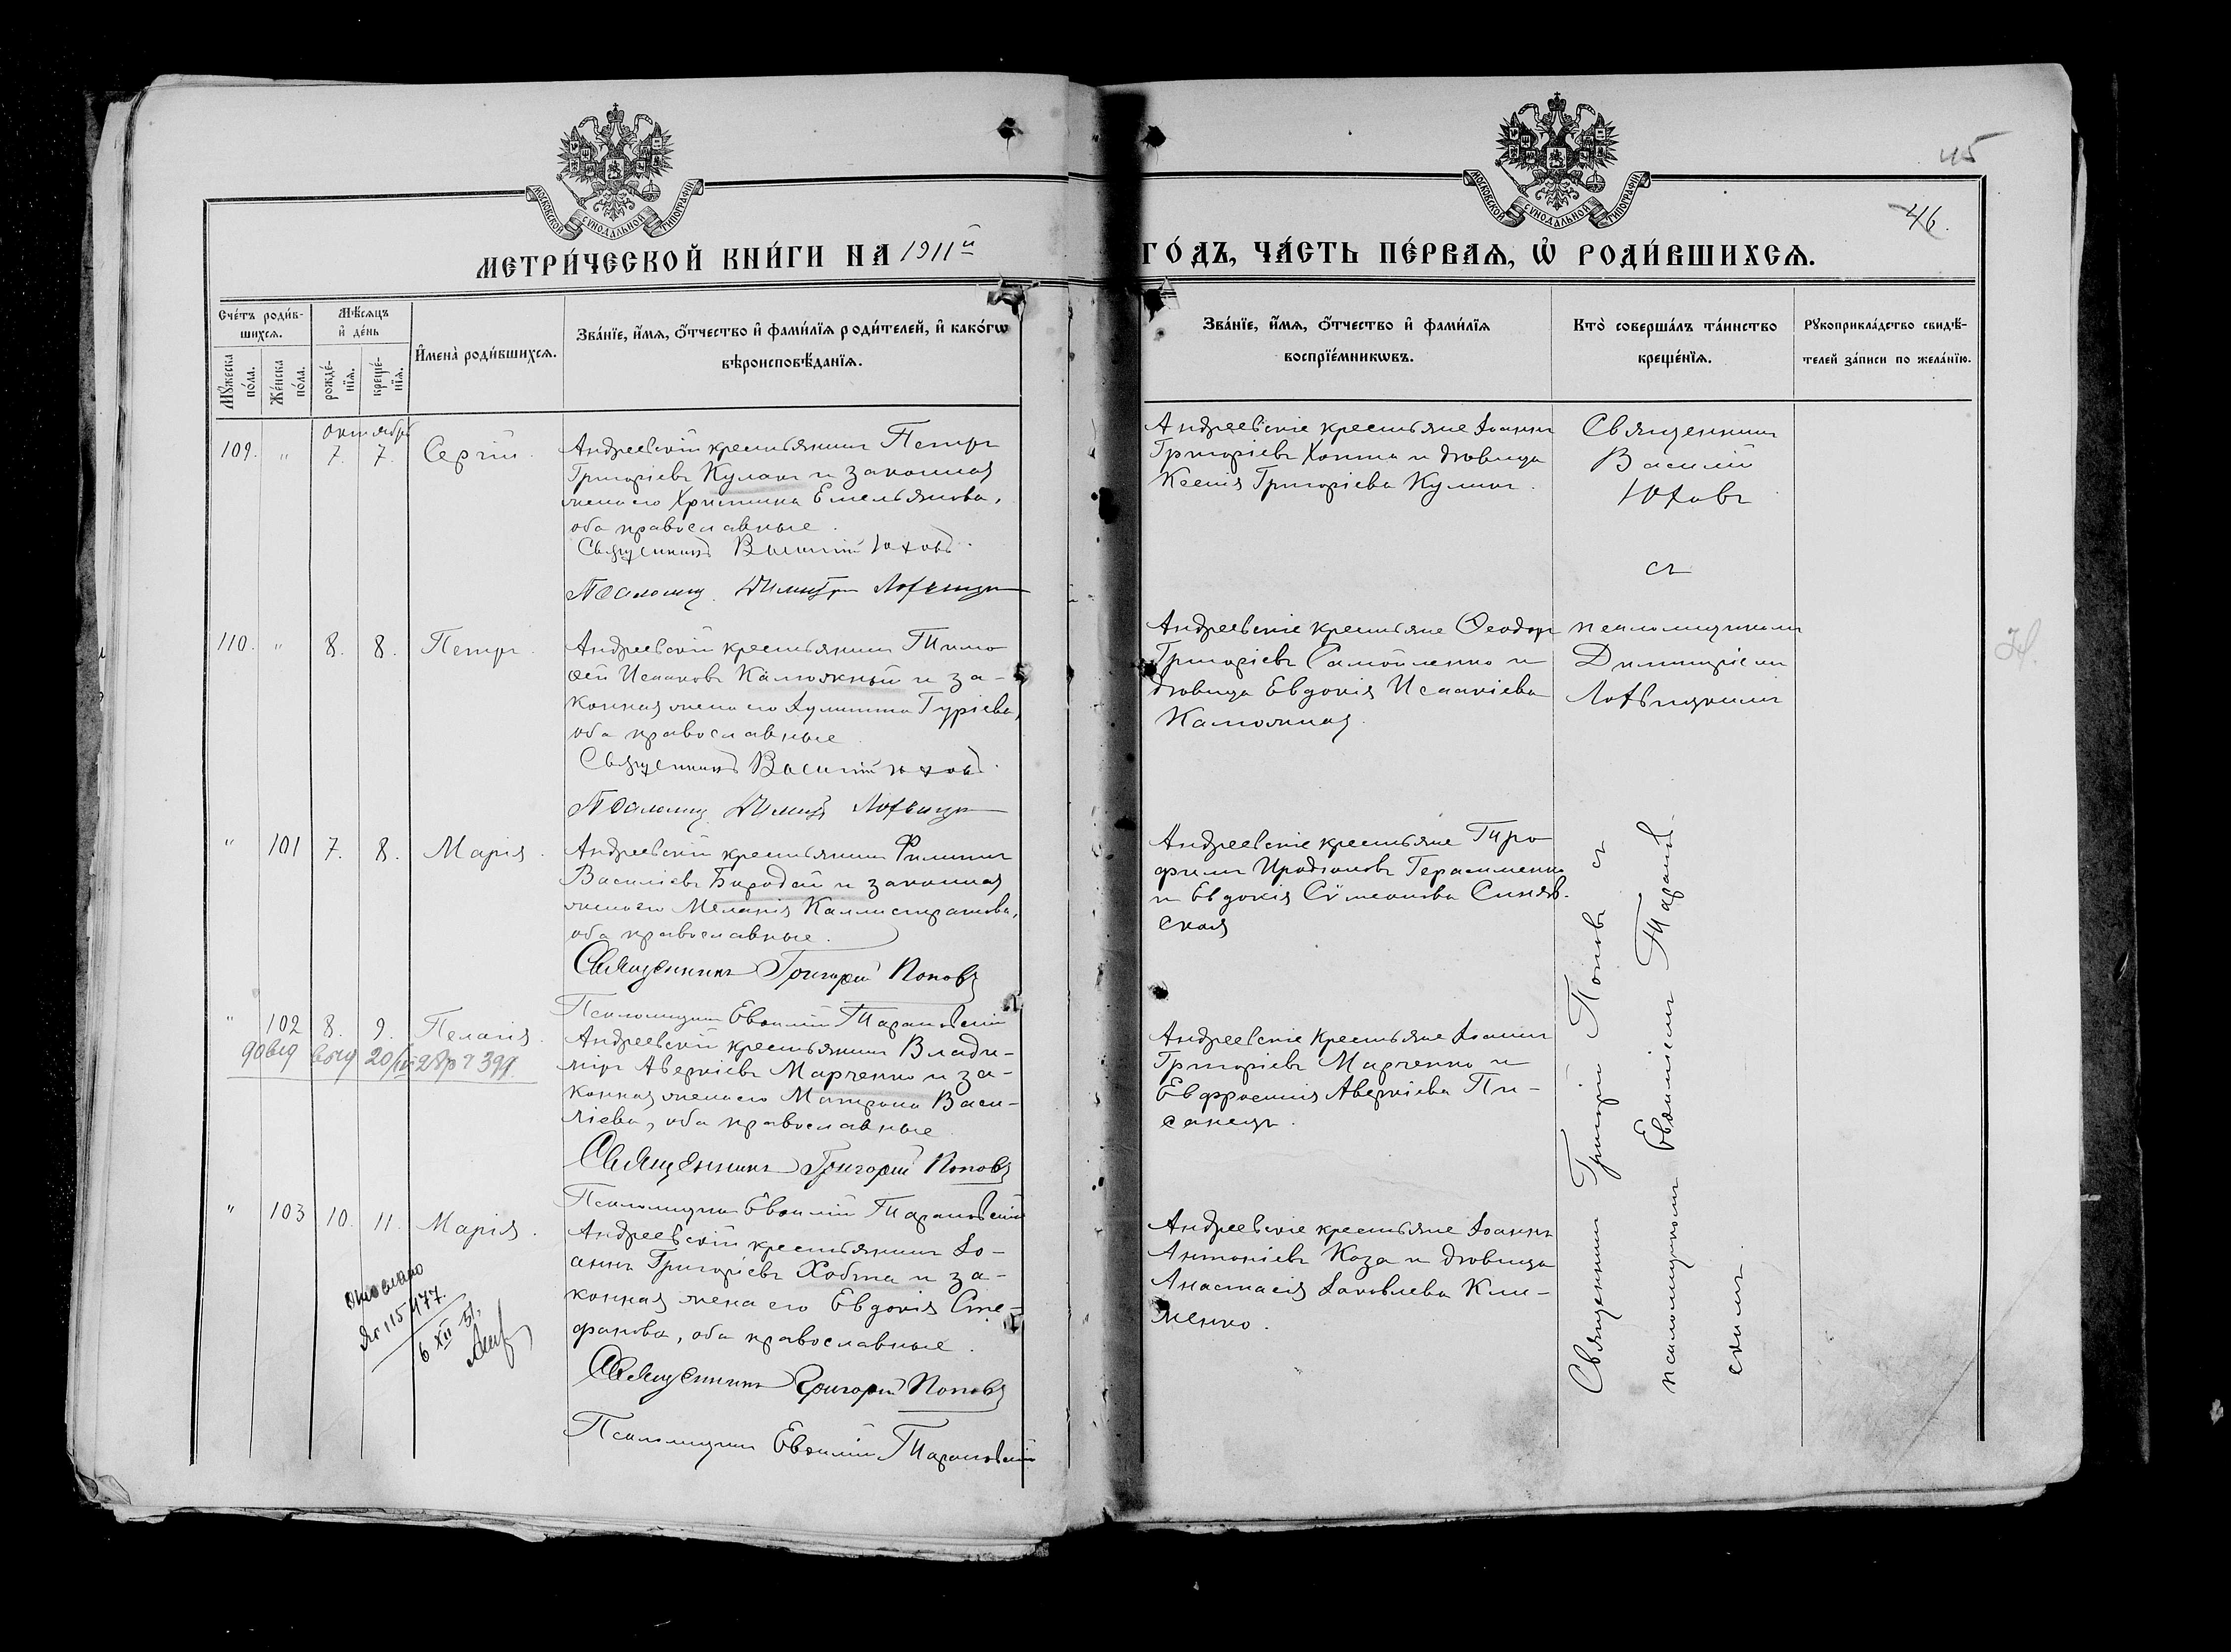 45
46.
МОСКОВСКОЙ СѴНОДАЛЬНОЙ ТИПОГРАФІИ
МОСКОВСКОЙ СѴНОДАЛЬНОЙ ТИПОГРАФІИ
МЕТРИ́ЧЕСКОЙ КНИ́ГИ НА 1911й ГО́ДЪ, ЧА́СТЬ ПЕ́РВАЯ, Ѡ҆ РОДИ́ВШИХСЯ.
Сче́тъ роди́в-
шихся.
Мꙋ́жеска по́ла.
Же́нска по́ла.
Мѣ́сяцъ
и҆ де́нь
рожде́-
нїя.
креще́-
нїя.
И҆мена̀ роди́вшихся.
Зва́нїе, и҆́мя, ѻ҆́тчество и҆ фами́лїя роди́телей, и҆ како́гѡ
вѣроисповѣ́данїя.
Зва́нїе, и҆́мя, ѻ҆́тчество и҆ фами́лїя
воспрїе́мникѡвъ.
Кто̀ соверша́лъ та́инство
креще́нїя.
Рꙋкоприкла́дство свидѣ́-
телей за́писи по жела́нїю.
октябрь
109. " 7. 7. Сергій.
Андреевскій крестьянинъ Петръ
Григоріевъ Кулакъ и законная
жена его Христина Емельянова,
оба православные.
Священникъ Василій Юховъ.
Псаломщ. Димитрій
Андреевскіе крестьяне Іоаннъ
Григоріевъ Хобта и дѣвица
Ксенія Григоріева Кулакъ.
Священникъ
Василій
Юховъ
съ
псаломщикомъ
Димитріемъ
110. " 8. 8. Петръ.
Андреевскій крестьянинъ Тимо
ѳей Исааковъ Калюжный и за-
конная жена его Акулина Гуріева,
оба православные.
Священникъ Василій Юховъ.
Псаломщ. Димитр
Андреевскіе крестьяне Ѳеодоръ
Григоріевъ Самойленко и
дѣвица Евдокія Исаакіева
Калюжная.
" 101 7. 8. Марія.
Андреевскій крестьянинъ Филиппъ
Василіевъ Бородай и законная
жена его Меланія Каллистратова,
оба православные.
Священникъ Григорій Поповъ
Псаломщикъ Евѳимій Тарановскій
Андреевскіе крестьяне Тро
фимъ Иродіоновъ Герасименко
и Евдокія Сѵмеонова Синяв-
ская
" 102 8. 9. Пелагія.
Андреевскій крестьянинъ Влади-
міръ Аверкіевъ Марченко и за-
конная жена его Матрона Васи-
ліева, оба православные.
Священникъ Григорій Поповъ
Псаломщикъ Евѳимій Тарановскій
Андреевскіе крестьяне Іоаннъ
Григоріевъ Марченко и
Евфросинія Аверкіева Пи-
санецъ.
" 103 10. 11. Марія.
отослано
№ 115477.
6 XII 51.
Андреевскій крестьянинъ Іо-
аннъ Григоріевъ Хобта и за-
конная жена его Евдокія Сте-
фанова, оба православные.
Священникъ Григорій Поповъ
Псаломщикъ Евѳимій Тарановскій
Андреевскіе крестьяне Іоаннъ
Антоніевъ Коза и дѣвица
Анастасія Іаковлева Кли-
менко.
Священникъ Григорій Поповъ съ
псаломщикомъ Евѳиміемъ Таранов-
скимъ.